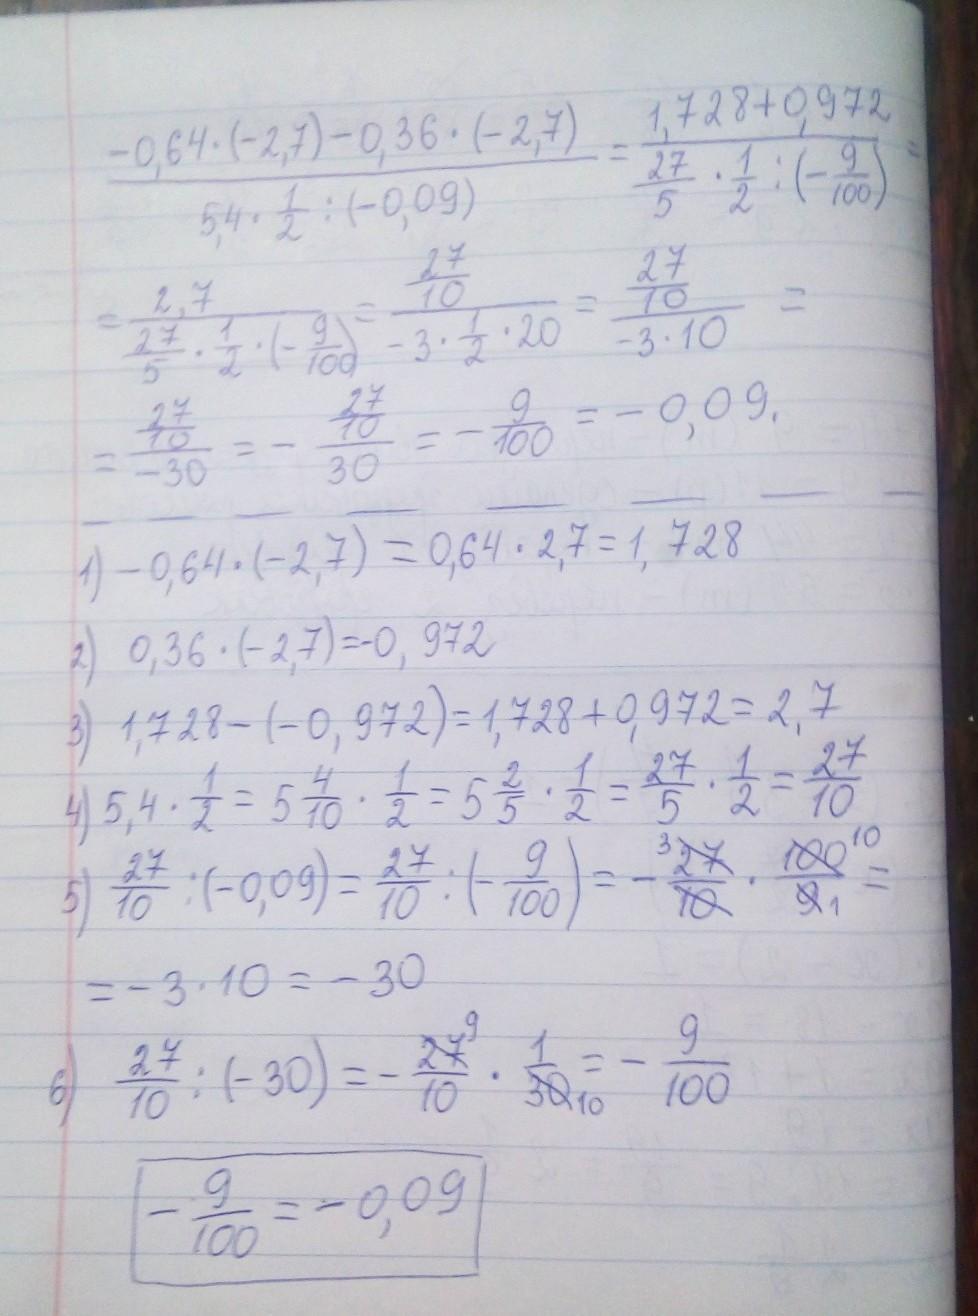 (-0,64·(-2,7)-0,36·(-2,7))/(5,4·1/2:(-0,09)) = (1,728+0,972)/(27/5·1/2:(-9/100)) =
= 2,7/(27/5·1/2·(-9/100)) = (27/10)/(-3·1/2·20) = (27/10)/(-3·10) =
= (27/10)/(-30) = - (27/10)/30 = - 9/100 = -0,09.
1) -0,64·(-2,7) = 0,64·2,7 = 1,728
2) 0,36·(-2,7)=-0,972
3) 1,728-(-0,972)=1,728+0,972=2,7
4) 5,4·1/2 = 5 4/10·1/2 = 5 2/5·1/2 = 27/5·1/2 = 27/10
5) 27/10:(-0,09) = 27/10:(-9/100) = - 3 27/10·100 10/9 1 =
= -3·10 = -30
6) 27/10:(-30) = - 27 9/10·1/30 10 = - 9/100
- 9/100 = -0,09